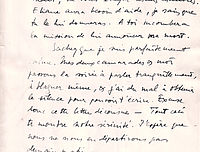 Eliane aura besoin d'aide, je sais que
tu le lui donneras. A toi incombera
la mission de lui annoncer ma mort.
Sache que je suis parfaitement
calme. Mes deux camarades et moi
passons la soirée à parler tranquillement,
à blaguer même, et j'ai du mal à obtenir
le silence pour pouvoir écrire. Excuse
donc cette lettre décousue — Tout cela
te montre notre sérénité. J'espère que
nous ne nous en départirons pas
demain matin